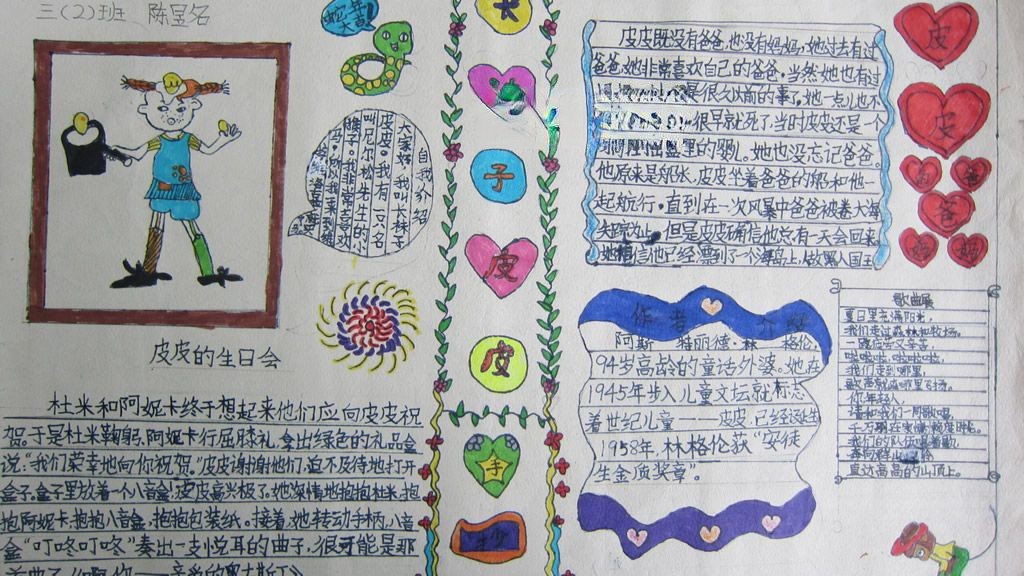 三(2)班 陈昱名
蛇年
吉!
自我介绍
大家好,我叫长袜子
皮皮。我有一只名
叫尼尔松先生的小
猴子。我非常喜欢
长
子
皮
皮
手
抄
皮皮的生日会
杜米和阿妮卡终于想起来他们应向皮皮祝
贺。于是杜米鞠躬,阿妮卡行屈膝礼,拿出绿色的礼品盒
说:“我们荣幸地向你祝贺。”皮皮谢谢他们,迫不及待地打开
盒子,盒子里放着一个八音盒,皮皮高兴极了。她深情地抱抱杜米,抱
抱阿妮卡,抱抱八音盒,抱抱包装纸。接着,她转动手柄,八音
盒“叮咚叮咚”奏出一支悦耳的曲子,很可能是那
皮皮既没有爸爸,也没有妈妈,她过去有过
爸爸,她非常喜欢自己的爸爸。当然她也有过
是很久以前的事了,她一点儿也不
很早就死了,当时皮皮还是一个
里的婴儿。她也没忘记爸爸。
他原来是船长,皮皮坐着爸爸的船和他一
起航行,直到在一次风暴中爸爸被卷大海
失踪为止。但是皮皮确信他总有一天会回来
她相信他已经漂到了一个海岛上,做黑人国王
皮
皮
爸
爸
妈
妈
作者介绍
阿斯特丽德·林格伦
94岁高龄的童话外婆。她在
1945年步入儿童文坛就标志
着世纪儿童——皮皮已经诞生
1958年,林格伦获“安徒
生金质奖章”。
歌曲展
夏日里充满阳光,
我们走过森林和牧场。
我们走到哪里,
歌声就在哪里飞扬。
你,年轻人,
请和我们一同歌唱,
我们的队伍唱着歌,
直达高高的山顶上。